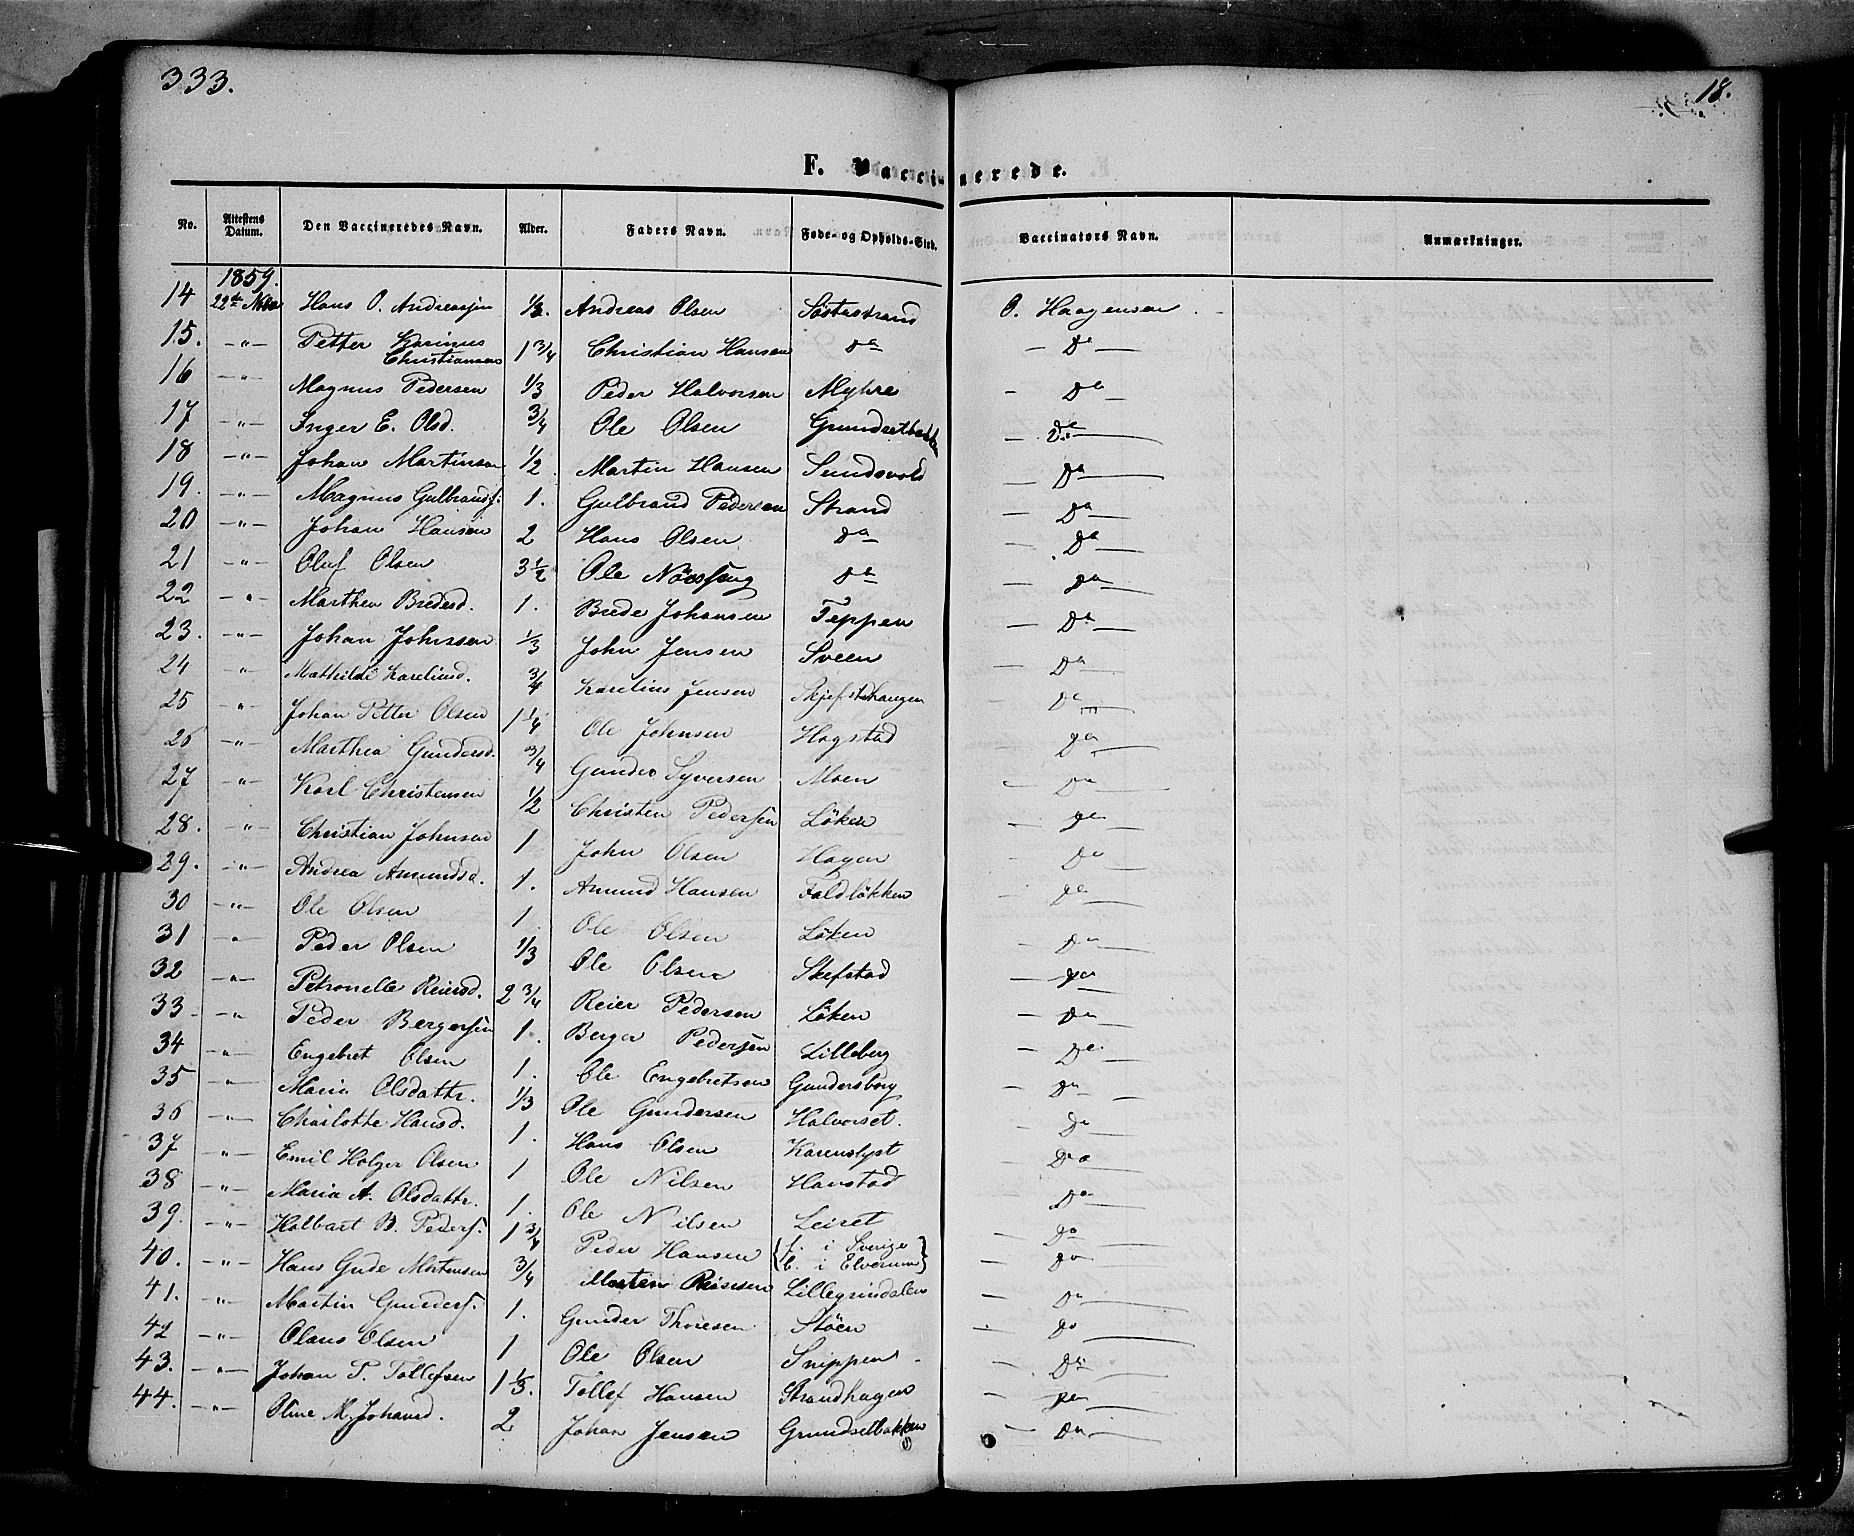 333.
18.
F. Vaccinerede.
No. Attestens Datum. Den Vaccineredes Navn. Alder. Faders Navn. Føde- og Opholds-Sted. Vaccinators Navn. Anmærkninger.
1859.
14 22de Hans O. Andreassen 1/2. Andreas Olsen Söstestrand O. Haagensen
15. -"- Petter Karinus Christiansen 1 3/4 Christian Hansen do - Do -
16 -"- Magnus Pedersen 1/3 Peder Halvorsen Myhre - Do -
17 -"- Inger E. Olsd. 3/4 Ole Olsen Grundsetbakken - Do -
18 -"- Johan Martinsen 1/2 Martin Hansen Sundsvold - Do -
19. -"- Magnus Gulbrands. 1. Gulbrand Pedersen Strand - Do -
20 -"- Johan Hansen 2 Hans Olsen do - Do -
21 -"- Oluf Olsen 3 1/2 Ole do - Do -
22 -"- Marthea Bredesd. 1. Brede Johansen Teppen - Do -
23. -"- Johan Johnsen 1/3 John Jensen Sveen - Do -
24 -"- Mathilde Kareliusd. 3/4 Karelius Jensen Skjefstshaugen - Do -
25 -"- Johan Petter Olsen 1 1/4 Ole Johnsen Hagstad - Do -
26 -"- Marthea Gundersd. 3/4 Gunder Syversen Moen - Do -
27 -"- Karl Christensen 1/2 Christen Pedersen Löken - Do -
28. -"- Christian Johnsen 1 John Olsen Hagen - Do -
29. -"- Andrea Amundsd. 1. Amund Hansen Faldlökken - Do -
30 -"- Ole Olsen 1 Ole Olsen Löken - Do -
31 -"- Peder Olsen 1/3 Ole Olsen Skefstad - Do -
32 -"- Petronelle Reiersd. 2 3/4 Reier Pedersen Löken - Do -
33 -"- Peder Bergersen 1. Berger Pedersen Lilleberg - Do -
34 -"- Engebret Olsen 1. Ole Engebretsen Gundersborg - Do -
35 -"- Maria Olsdattr. 1/3 Ole Gundersen Halvorset. - Do -
36 -"- Charlotte Hansd. 1. Hans Olsen Karenslyst - Do -
37 -"- Emil Holger Olsen 1 Ole Nilsen Hanstad - Do -
38 -"- Maria A. Olsdattr. 1. Ole Nilsen Leiret - Do -
39. -"- Halbart B. Peders. 1 3/4 Peder Hansen {f. i Sverige b. i Elverum} - Do -
40. -"- Hans Gude Mortensen 3/4 Morten Lillegrindalen - Do -
41. -"- Martin Gunders. 1. Gunder Thoresen Stöen - Do -
42 -"- Olaus Olsen 1 Ole Olsen Snippen - Do -
43. -"- Johan T. Tollefsen 1 1/3. Tollef Hansen Strandhagen - Do -
44. -"- Oline M. Johansd. 2 Johan Jensen Grundsetbakken - Do -